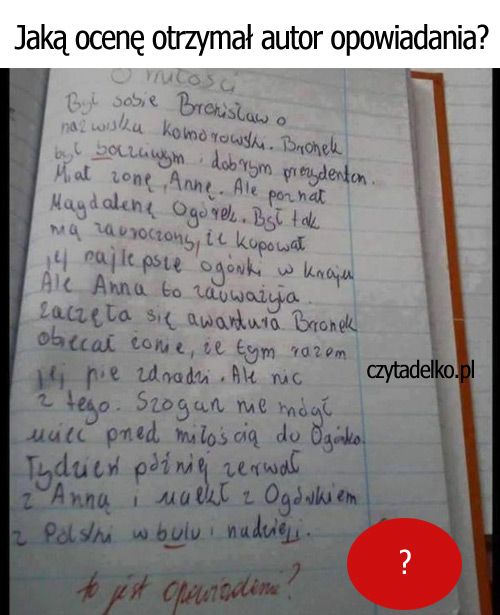 Jaką ocenę otrzymał autor opowiadania?
O miłości
Był sobie Bronisław o
nazwisku Komorowski. Bronek
był poczciwym i dobrym prezydentem.
Miał żonę, Annę. Ale poznał
Magdalenę Ogórek. Był tak
nią zauroczony, że kupował
jej najlepsze ogórki w kraju
Ale Anna to zauważyła.
zaczęła się awantura Bronek
obiecał żonie, że tym razem
jej nie zdradzi. Ale nic
czytadelko.pl
z tego. Szogun nie mógł
uciec przed miłością do Ogórka.
Tydzień później zerwał
z Anną i uciekł z Ogórkiem
z Polski w bulu i nadzieji.
?
to jest opowiadanie?